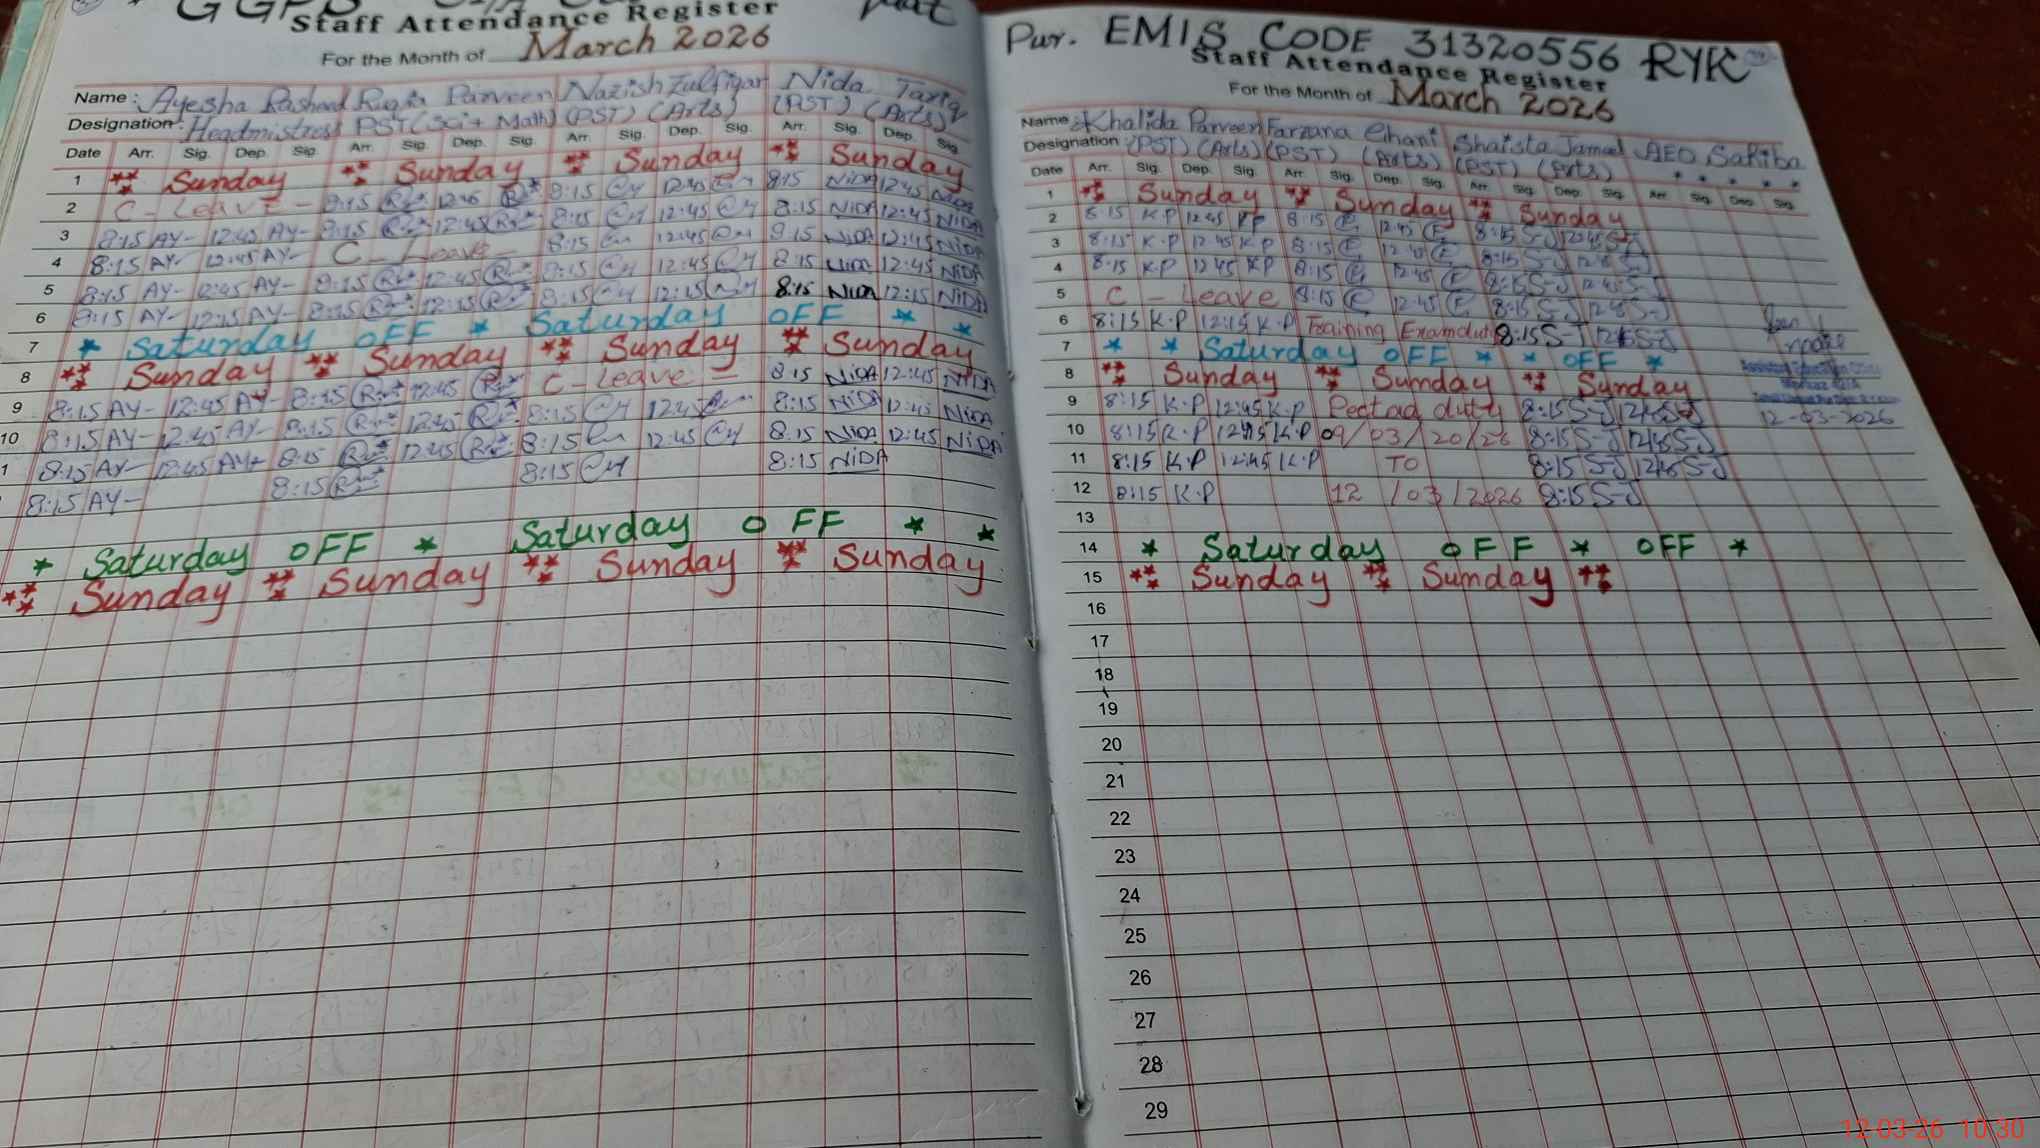 GGPS
Staff Attendance Register
For the Month of March 2026
Name: Ayesha Rasheed Ruqia Parveen Nazish Zulfiqar Nida Tariq
Designation: Headmistress PST (Sci + Math) (PST) (Arts) (PST) (Arts)
Date Arr. Sig. Dep. Sig. Arr. Sig. Dep. Sig. Arr. Sig. Dep. Sig. Arr. Sig. Dep. Sig.
1 Sunday Sunday Sunday Sunday
2 C-Leave - 8:15 12:45 8:15 12:45 8:15 NIDA 12:45 NIDA
3 8:15 AY- 12:45 AY- 8:15 12:45 8:15 12:45 8:15 NIDA 12:45 NIDA
4 8:15 AY- 12:45 AY- C-Leave 8:15 12:45 8:15 NIDA 12:45 NIDA
5 8:15 AY- 12:45 AY- 8:15 12:45 8:15 12:45 8:15 NIDA 12:45 NIDA
6 8:15 AY- 12:15 AY- 8:15 12:15 8:15 12:15 8:15 NIDA 12:15 NIDA
7 * Saturday OFF * Saturday OFF * *
8 Sunday Sunday Sunday Sunday
9 8:15 AY- 12:45 AY- 8:15 12:45 C-Leave - 8:15 NIDA 12:45 NIDA
10 8:15 AY- 12:45 AY- 8:15 12:45 8:15 12:45 8:15 NIDA 12:45 NIDA
1 8:15 AY- 12:45 AY- 8:15 12:45 8:15 12:45 8:15 NIDA 12:45 NIDA
8:15 AY- 8:15 8:15 8:15 NIDA
* Saturday OFF * Saturday OFF * *
Sunday Sunday Sunday Sunday
Pur. EMIS CODE 31320556 RYK
Staff Attendance Register
For the Month of March 2026
Name: Khalida Parveen Farzana Ghani Shaista Jameel AEO Sahiba
Designation: (PST) (Arts) (PST) (Arts) (PST) (Arts)
Date Arr. Sig. Dep. Sig. Arr. Sig. Dep. Sig. Arr. Sig. Dep. Sig. Arr. Sig. Dep. Sig.
1 Sunday Sunday Sunday
2 8:15 K.P 12:45 KP 8:15 12:45 8:15 S-J 12:45 S-J
3 8:15 K.P 12:45 K.P 8:15 12:45 8:15 S-J 12:45 S-J
4 8:15 K.P 12:45 K.P 8:15 12:45 8:15 S-J 12:45 S-J
5 C-Leave 8:15 12:45 8:15 S-J 12:45 S-J
6 8:15 K.P 12:15 K.P Training Exam duty 8:15 S-J 12:15 S-J
7 * * Saturday OFF * * OFF *
8 Sunday Sunday Sunday
9 8:15 K.P 12:45 K.P duty 8:15 S-J 12:45 S-J
12-03-2026
10 8:15 K.P 12:45 K.P 09/03/2026 8:15 S-J 12:45 S-J
11 8:15 K.P 12:45 K.P TO 8:15 S-J 12:45 S-J
12 8:15 K.P 12/03/2026 8:15 S-J
13
14 * Saturday OFF * OFF *
15 Sunday Sunday
16
17
18
19
20
21
22
23
24
25
26
27
28
29
12-03-26 10:30